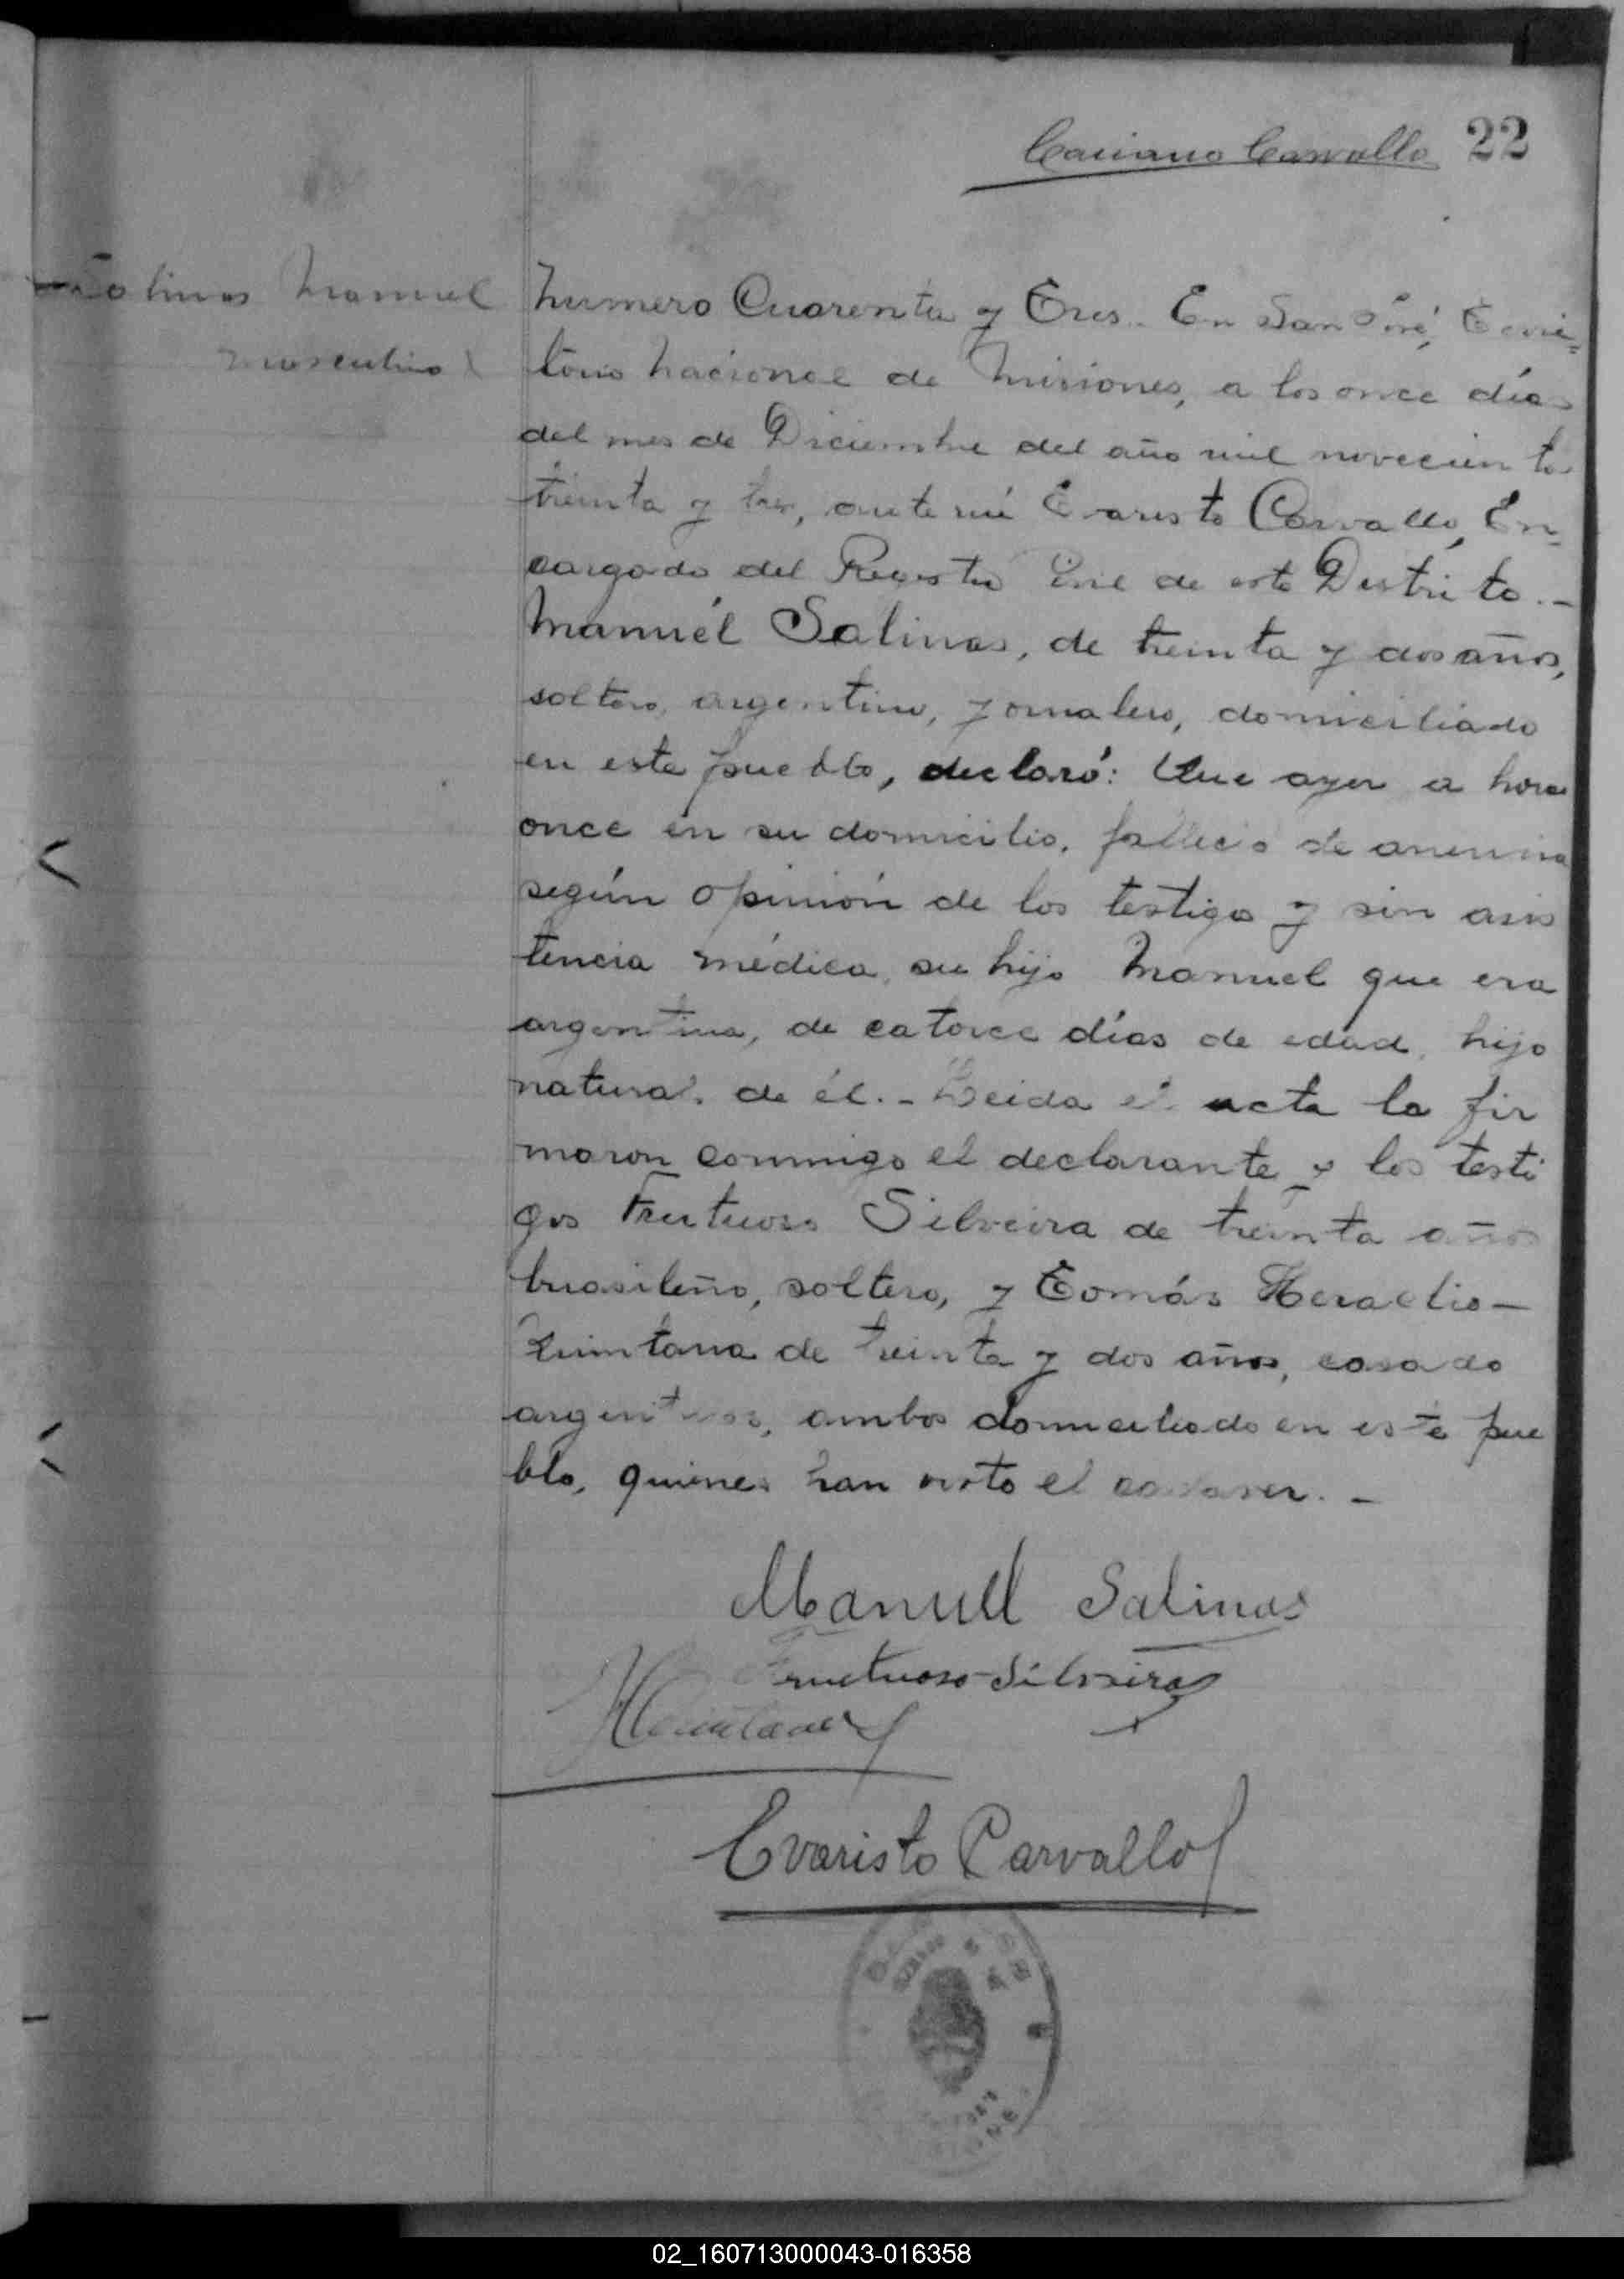 Caciano Carvallo 22
Salinas Manuel
masculino
Numero Cuarenta y Tres.. En San José, Terri=
torio Nacional de Misiones, a los once días
del mes de Diciembre del año mil novecientos
treinta y tres, ante mí Evaristo Carvallo, En=
cargado del Registro Civil de este Distrito.-
Manuél Salinas, de treinta y dos años,
soltero, argentino, jornalero, domiciliado
en este pueblo, declaró: Que ayer a horas
once en su domicilio, falleció de anemia
según opinión de los testigos y sin asis
tencia médica, su hijo Manuel que era
argentino, de catorce días de edad, hijo
natural de él.- Leida el acta la fir
maron conmigo el declarante y los testi
gos Frutuoso Silveira de treinta años
brasileño, soltero, y Tomás Heraclio-
Quintana de treinta y dos años, casado
argentino, ambos domiciliado en este pue
blo, quienes han visto el cadaver.-
Manuel Salinas
Fructuoso Silveira
HQuintana
Evaristo Carvallo
02_160713000043-016358